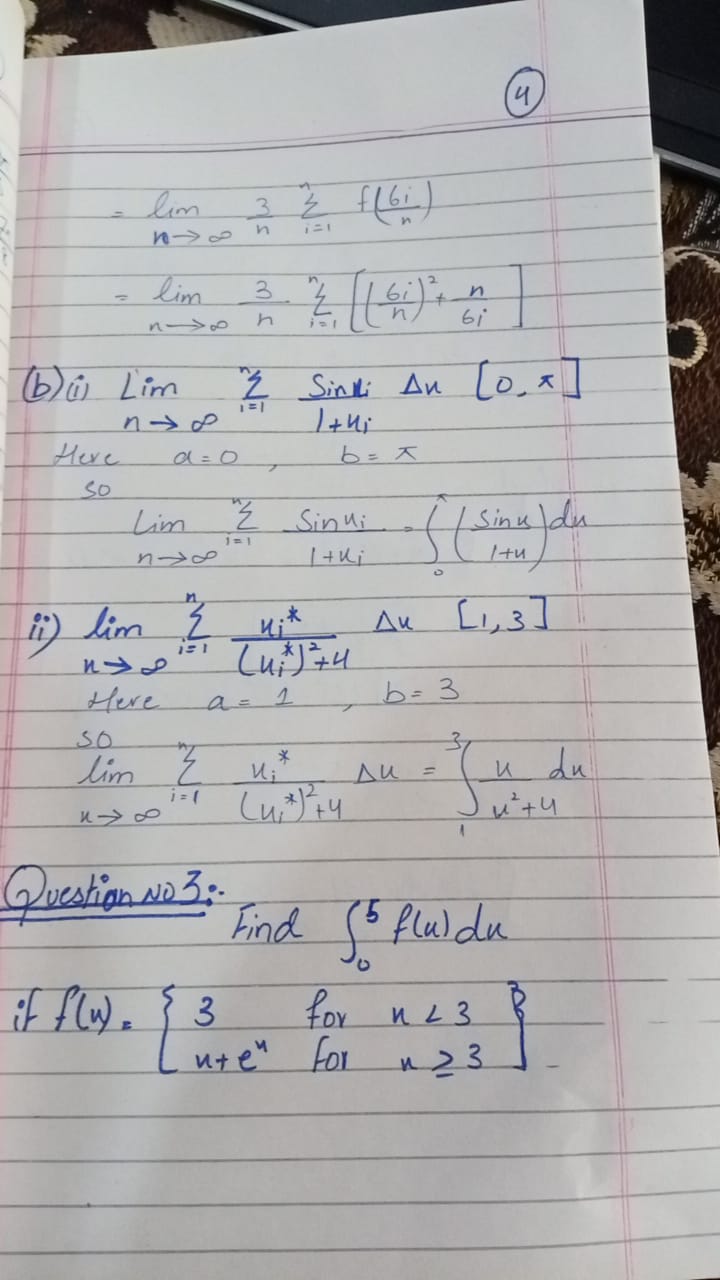 4
= lim n→∞ 3/n Σ i=1 n f(6i/n)
= lim n→∞ 3/n Σ i=1 n [(6i/n)² + n/6i]
(b) i) Lim n→∞ Σ i=1 n Sin xi / 1+xi Δx [0, π]
Here a=0 , b=π
so
Lim n→∞ Σ i=1 n Sin xi / 1+xi = ∫ 0 π (Sin x / 1+x) dx
ii) lim n→∞ Σ i=1 n xi* / (xi*)²+4 Δx [1,3]
Here a=1 , b=3
so
lim n→∞ Σ i=1 n xi* / (xi*)²+4 Δx = ∫ 1 3 x / x²+4 dx
Question No 3:-
Find ∫ 0 5 f(x) dx
if f(x) = { 3 for x < 3
x+eˣ for x ≥ 3 }